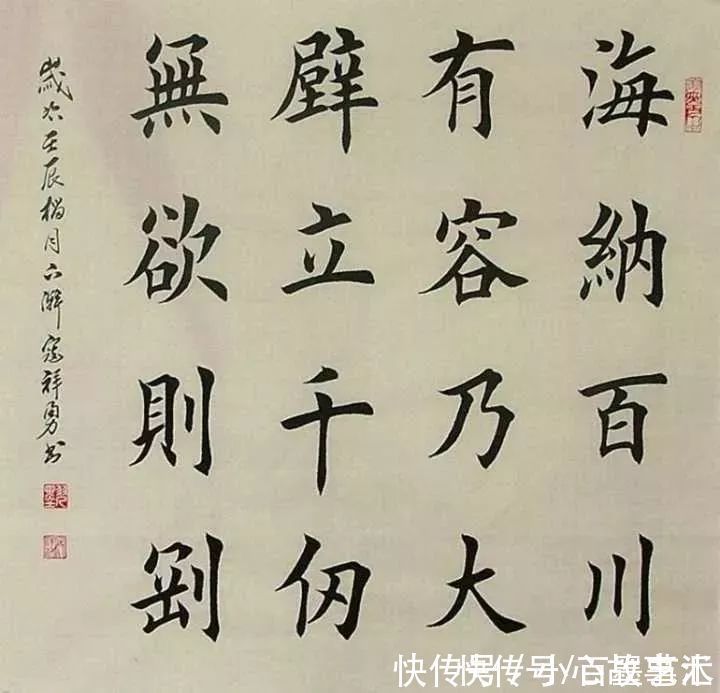 海納百川
有容乃大
壁立千仞
無欲則剛
歲次壬辰榴月下澣寇祥勇书
快传号